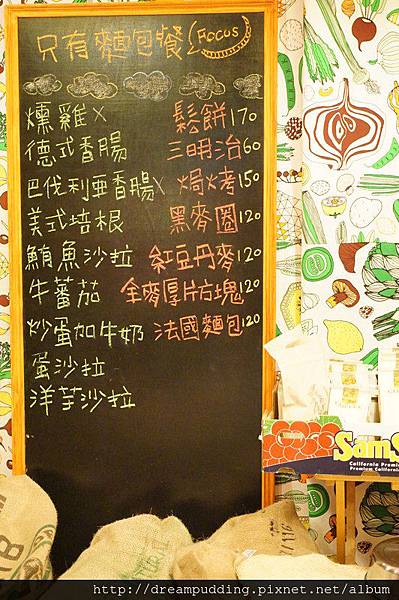 只有麵包餐 FOCUS
燻雞X 鬆餅170
德式香腸 三明治60
巴伐利亞香腸X 焗烤150
美式培根 黑麥圈120
鮪魚沙拉 紅豆丹麥120
牛蕃茄 全麥厚片方塊120
炒蛋加牛奶 法國麵包120
蛋沙拉
洋芋沙拉
SamS
California Premi
Premium Californi
http://dreampudding.pixnet.net/album